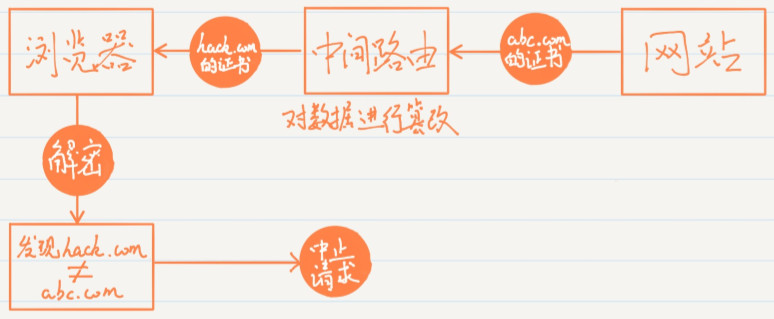 浏览器
hack.com
的证书
中间路由
abc.com
的证书
网站
对数据进行篡改
解密
发现hack.com
≠
abc.com
中止
请求